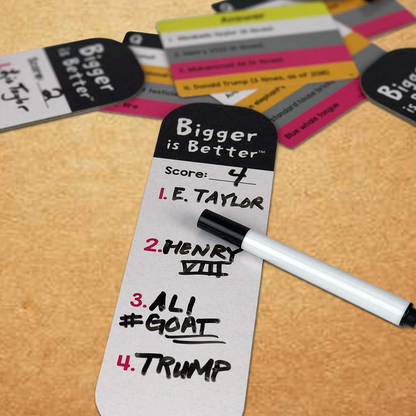 Answer
1. Elizabeth Taylor (8 times)
2. Henry VIII (6 times)
3. Muhammad Ali (4 times)
4. Donald Trump (3 times, as of 2018)
Bigger
is Better
Score: 2
elephant's
Standard house brick
Blue whale tongue
Bigger
is Better™
Score: 4
1. E. TAYLOR
2. HENRY
VIII
3. ALI
#GOAT
4. TRUMP